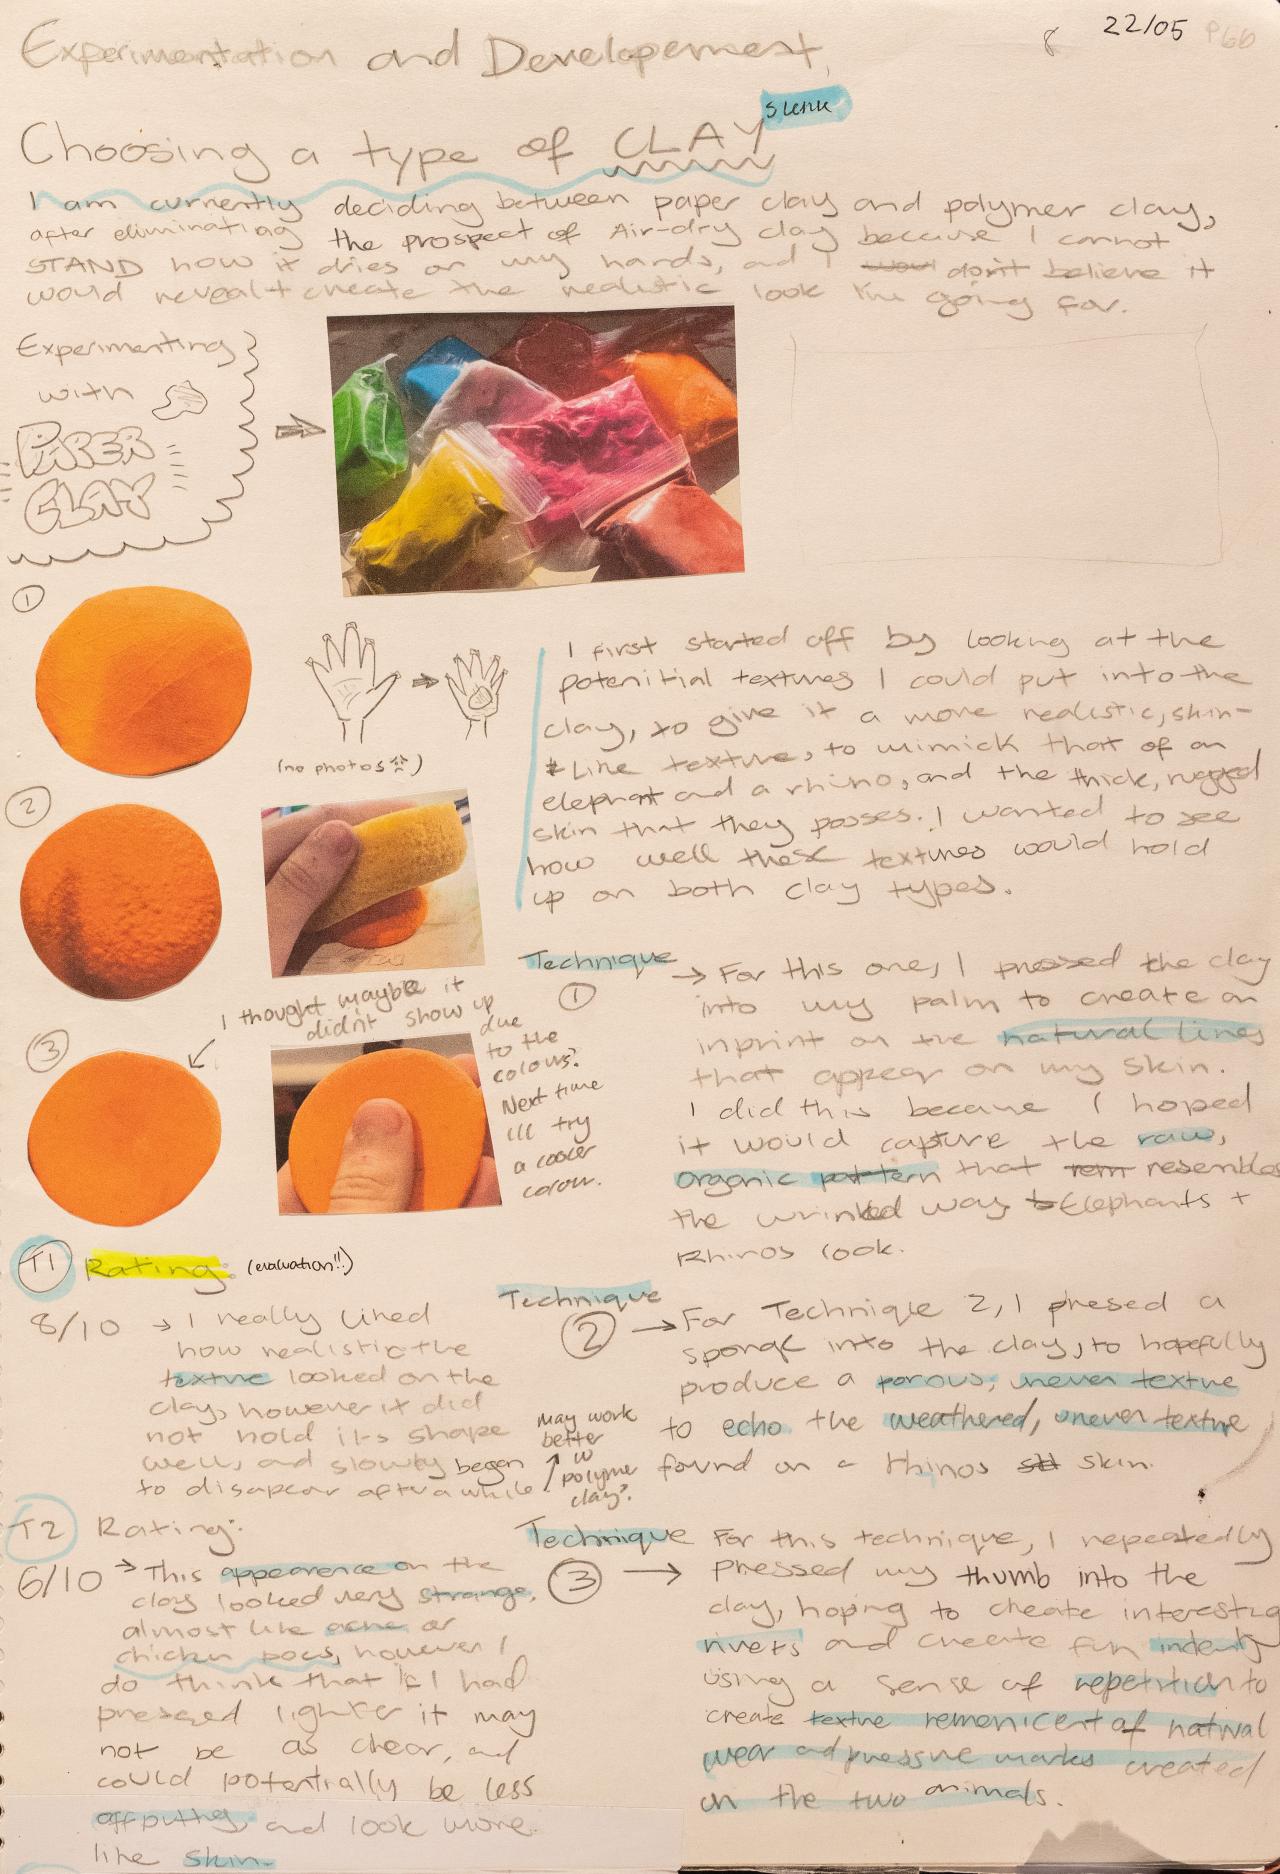 Experimentation and Developement
22/05 P66
Choosing a type of CLAY
I am currently deciding between paper clay and polymer clay,
after eliminating the prospect of Air-dry clay because I cannot
STAND how it dries on my hands, and I don't believe it
would reveal + create the realistic look I'm going for.
Experimenting
with
PAPER
CLAY
1
(no photos)
2
I first started off by looking at the
potenitial textures I could put into the
clay, to give it a more realistic, skin-
like texture, to mimick that of an
elephant and a rhino, and the thick, rugged
skin that they posses. I wanted to see
how well these textures would hold
up on both clay types.
3
I thought maybe it
didn't show up
due
to the
colours?
Next time
I'll try
a cooler
colour.
Technique
1
→ For this one, I pressed the clay
into my palm to create an
inprint on the natural lines
that appear on my skin.
I did this because I hoped
it would capture the raw,
organic pattern that resembles
the wrinkled way Elephants +
Rhinos look.
T1 Rating: (evaluation!!)
8/10 → I really liked
how realistic the
texture looked on the
clay, however it did
not hold its shape
well, and slowly began
to disapear after a while
may work
better
w
polymer
clay?
Technique
2
→ For Technique 2, I pressed a
sponge into the clay, to hopefully
produce a porous, uneven texture
to echo the weathered, uneven texture
found on a rhinos skin.
T2 Rating:
6/10 → This appearence on the
clay looked very strange,
almost like acne or
chicken pocs, however I
do think that if I had
pressed lighter it may
not be as clear, and
could potentrially be less
offputting, and look more
like skin.
Technique
3
→ For this technique, I repeatedly
pressed my thumb into the
clay, hoping to create interesting
rivets and create fun indents
using a sense of repetition to
create texture remenicent of natural
wear and pressure marks created
on the two animals.